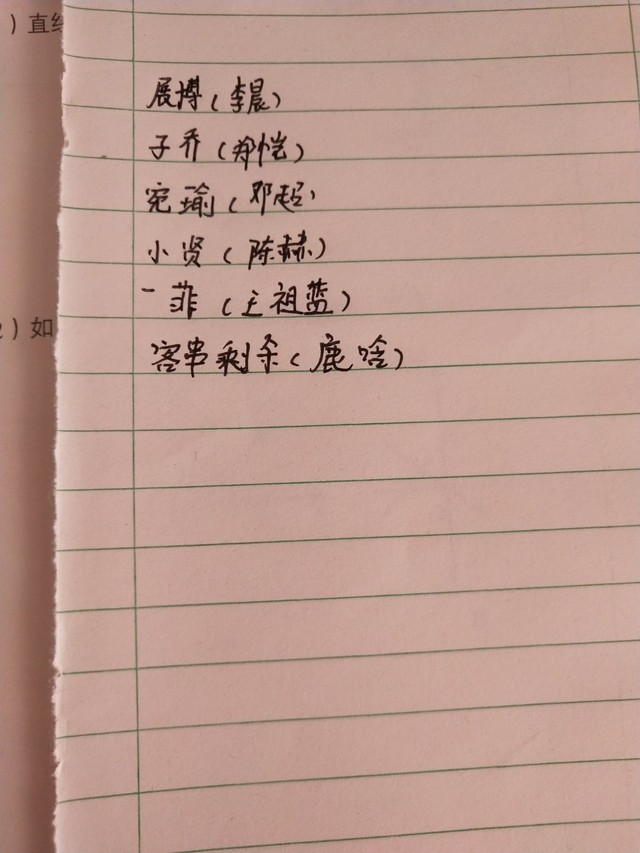 ）直纟
展博（李晨）
子乔（郑恺）
宛瑜（邓超）
小贤（陈赫）
一菲（王祖蓝）
）如
客串剩余（鹿啥）